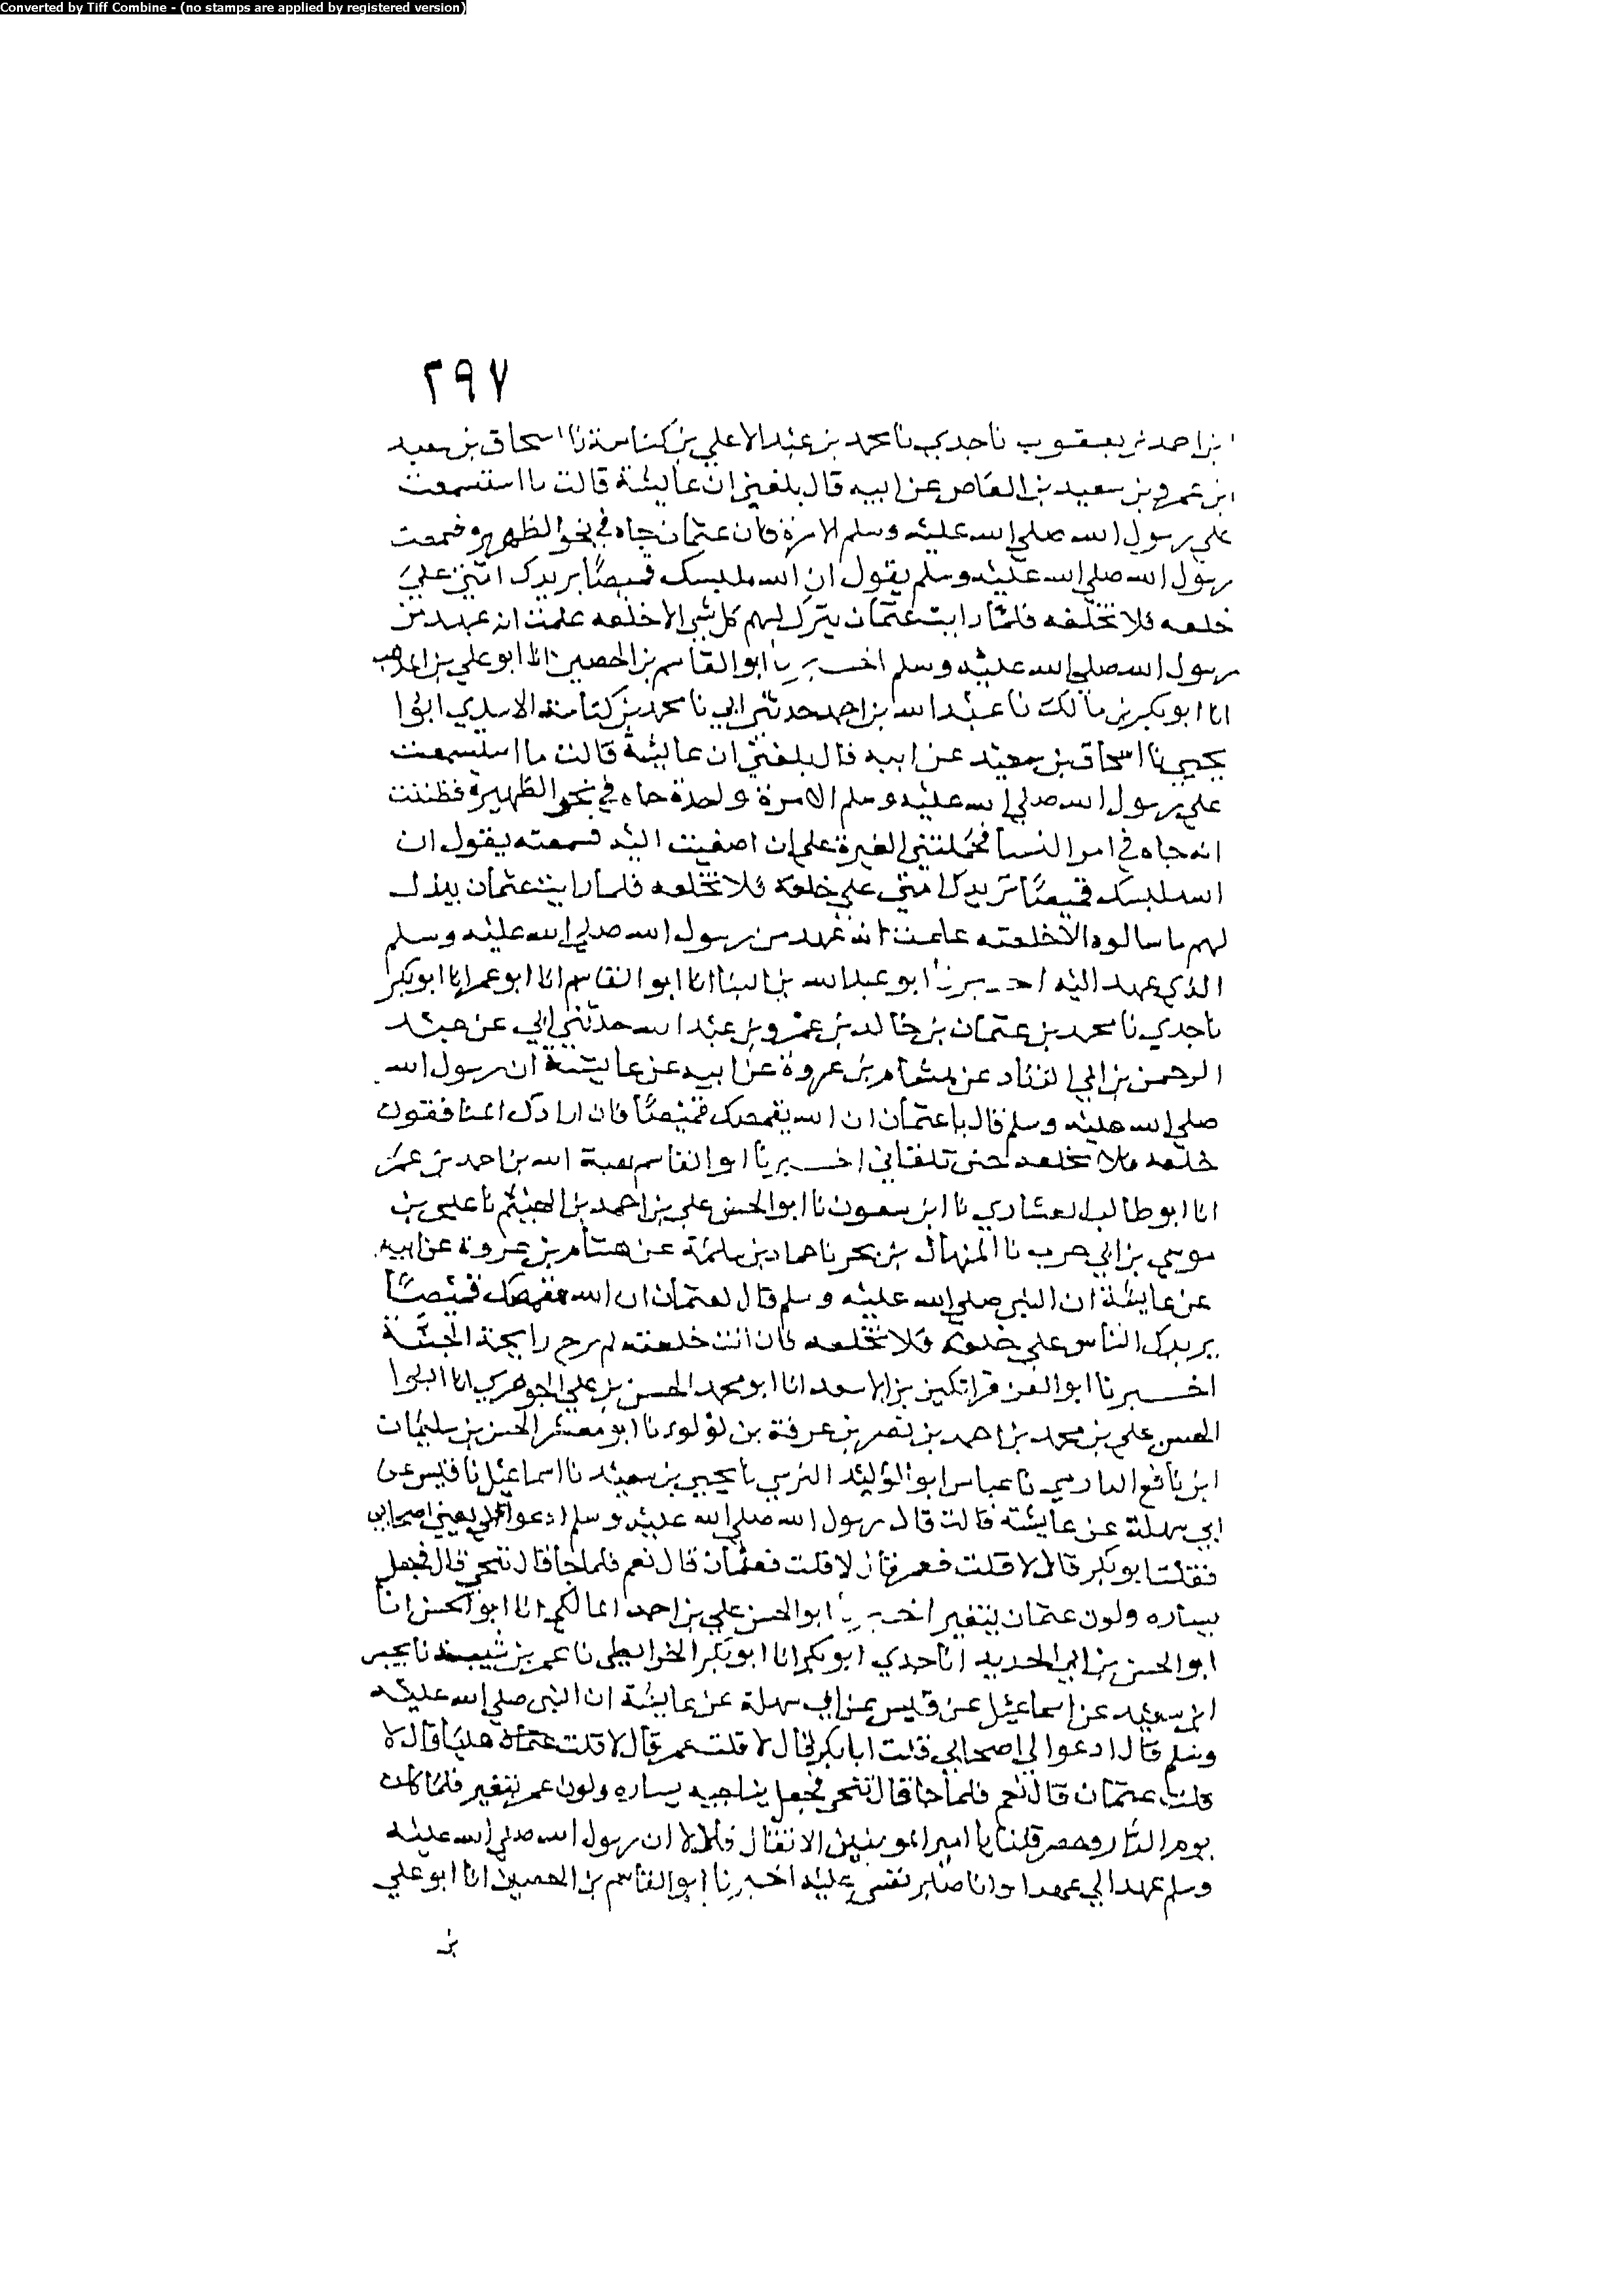 Converted by Tiff Combine - (no stamps are applied by registered version)
٢٩٧
ابن احمد بن يعقوب نا جدي نا محمد بن عبد الاعلي بن كناسة نا اسحاق بن سعيد
ابن عمرو بن سعيد بن العاص عن ابيه قال بلغني ان عايشة قالت ما استسمعت
علي رسول الله صلي الله عليه وسلم الا مرة فان عثمان جاه في نحو الظهيرة فسمعت
رسول الله صلي الله عليه وسلم يقول ان الله ملبسك قميصًا يريدك امتي علي
خلعه فلا تخلعه فلما رايت عثمان يترك لهم كل شي الا خلعه علمت انه عهد من
رسول الله صلي الله عليه وسلم اخبرنا ابو القاسم بن الحصين انا ابو علي بن المذهب
انا ابو بكر بن مالك نا عبد الله بن احمد حدثني ابي نا محمد بن كناسة الاسدي ابوا
يحيي نا اسحاق بن سعيد عن ابيه قال بلغني ان عايشة قالت ما استسمعت
علي رسول الله صلي الله عليه وسلم الا مرة واحدة جاه في نحو الظهيرة فظننت
انه جاه في امر النسا فحملتني الغيرة علي ان اصغيت اليه فسمعته يقول ان
الله ملبسك قميصًا تريدك امتي علي خلعه فلا تخلعه فلما رايت عثمان يبذل
لهم ما سالوه الا خلعه علمت انه عهد من رسول الله صلي الله عليه وسلم
الذي عهد اليه اخبرنا ابو عبد الله بن البنا انا ابو القاسم انا ابو عمر انا ابو بكر
نا جدي نا محمد بن عثمان بن خالد بن عمرو بن عبد الله حدثني ابي عن عبد
الرحمن بن ابي الزناد عن هشام بن عروة عن ابيه عن عايشة ان رسول الله
صلي الله عليه وسلم قال يا عثمان ان الله يقمصك قميصًا فان ارادك المنافقون
خلعه فلا تخلعه حتى تلقاني اخبرنا ابو القاسم هبة الله بن احمد بن عمر
انا ابو طالب العشاري نا ابن سمعون نا ابو الحسن علي بن احمد بن الهيثم نا عيسي بن
موسي بن ابي حرب نا المنهال بن بحر نا حماد بن سلمة عن هشام بن عروة عن ابيه
عن عايشة ان النبي صلي الله عليه وسلم قال لعثمان ان الله مقمصك قميصًا
يريدك الناس علي خلعه فلا تخلعه فان انت خلعته لم ترح رايحة الجنة
اخبرنا ابو العز قراتكين بن الاسعد انا ابو محمد الحسن بن علي الجوهري انا ابوا
الحسن علي بن محمد بن احمد بن نصر بن عرفة بن لؤلوء نا ابو معشر الحسن بن سليمان
ابن نافع الدارمي نا عباس ابو الوليد النرسي نا يحيي بن سعيد نا اسماعيل نا قيس عن
ابي سهلة عن عايشة قالت قال رسول الله صلي الله عليه وسلم ادعوا لي يعني اصحابي
فقلت ابو بكر قال لا قلت فعمر قال لا قلت فعثمان قال نعم فلما جا قال تنحي قال فجعل
يساره ولون عثمان يتغير اخبرنا ابو الحسن علي بن احمد المالكي انا ابو الحسن انا
ابو الحسن بن ابي الحديد انا جدي ابو بكر انا ابو بكر الخرايطي نا عمر بن شيبة نا يحيي
ابن سعيد عن اسماعيل عن قيس عن ابي سهلة عن عايشة ان النبي صلي الله عليه
وسلم قال ادعوا لي اصحابي قلت ابا بكر قال لا قلت عمر قال لا قلت عليا قال لا
قلت عثمان قال نعم فلما جا قال تنحي فجعل يناجيه يساره ولون عمر يتغير فلما كان
يوم الدار وحصر قلنا يا امير المومنين الا نقاتل قال لا ان رسول الله صلي الله عليه
وسلم عهد الي عهدا وانا صابر نفسي عليه اخبرنا ابو القاسم بن الحصين انا ابو علي
بن